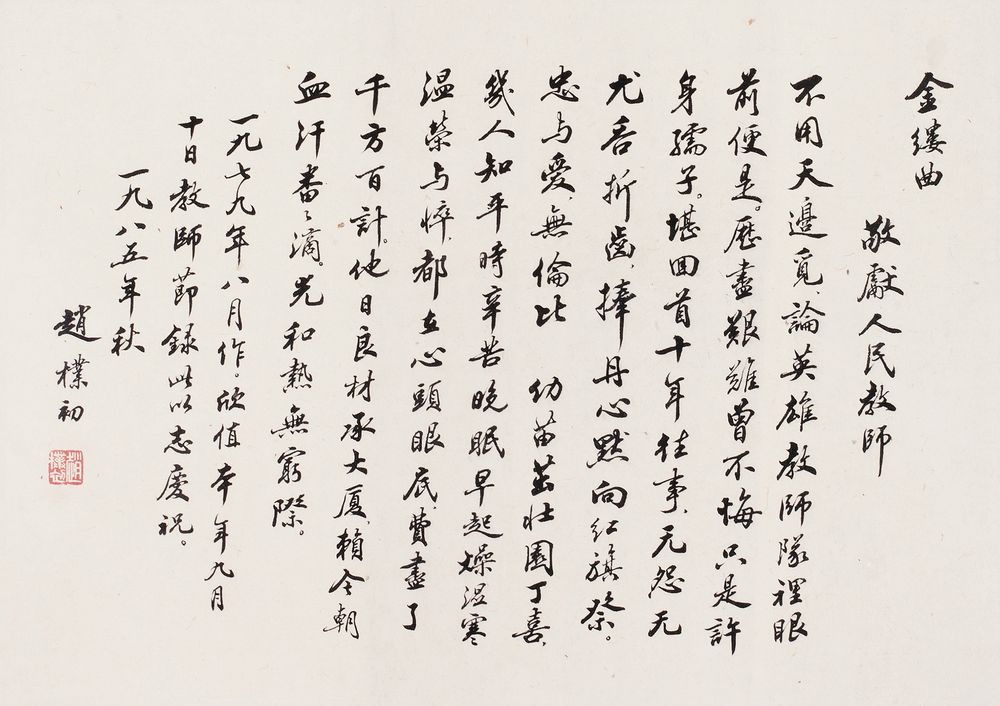 金缕曲
敬獻人民教師
不用天邊覓，論英雄教師隊裡眼
前便是。歷盡艱難曾不悔，只是許
身孺子。堪回首十年往事，无怨无
尤吞折齒，捧丹心默向红旗祭。
忠与愛，無倫比　幼苗茁壮園丁喜，
幾人知平時辛苦晚眠早起燥湿寒
温榮与悴，都在心頭眼底，費盡了
千方百計。他日良材承大厦，賴今朝
血汗番〻滴。光和熱無窮際。
一九七九年八月作，欣值本年九月
十日教師節録此以志慶祝。
一九八五年秋
趙樸初
趙樸初